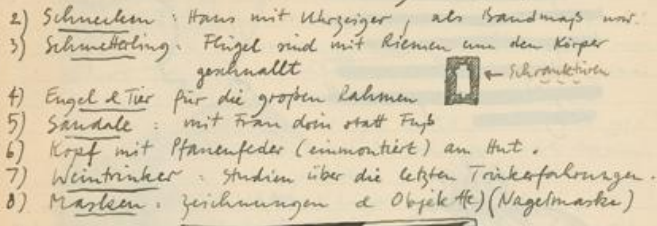 2) Schnecken : Haus mit Uhrzeiger, als Bandmaß
3) Schmetterling : Flügel sind mit Riemen um den Körper
geschnallt
← Schranktüren
4) Engel & Tier für die großen Rahmen
5) Sandale : mit Frau drin statt Fuß
6) Kopf mit Pfauenfeder (einmontiert) am Hut.
7) Weintrinker : Studien über die letzten Trinkerfahrungen.
8) Masken : Zeichnungen & Objekte) (Nagelmaske)